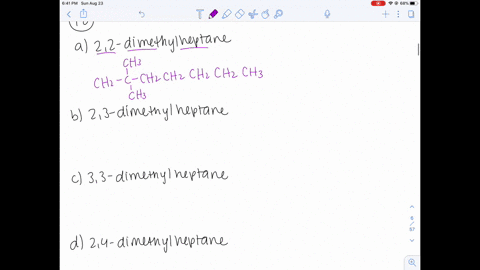 6:41 PM Sun Aug 23
69%
a) 2,2-dimethylheptane
CH3
CH3-C-CH2CH2CH2CH2CH3
CH3
b) 2,3-dimethylheptane
c) 3,3-dimethylheptane
d) 2,4-dimethylheptane
6
67